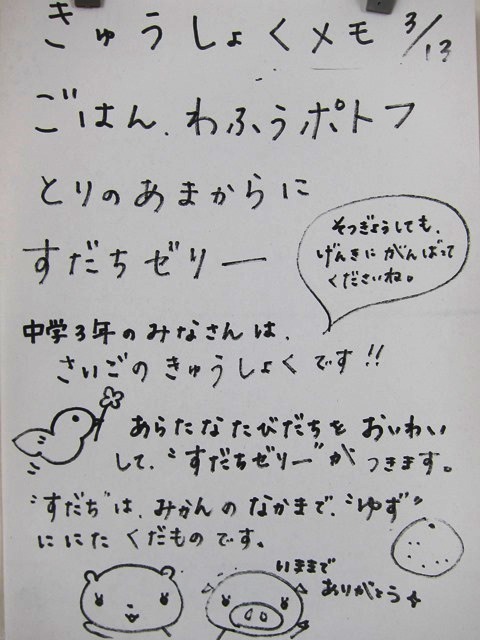 きゅうしょくメモ 3/13
ごはん、わふうポトフ
とりのあまからに
すだちゼリー
そつぎょうしても、
げんきにがんばって
くださいね。
中学3年のみなさんは、
さいごのきゅうしょくです!!
あらたなたびだちをおいわい
して、"すだちゼリー"がつきます。
"すだち"は、みかんのなかまで、"ゆず"
ににたくだものです。
いままで
ありがとう